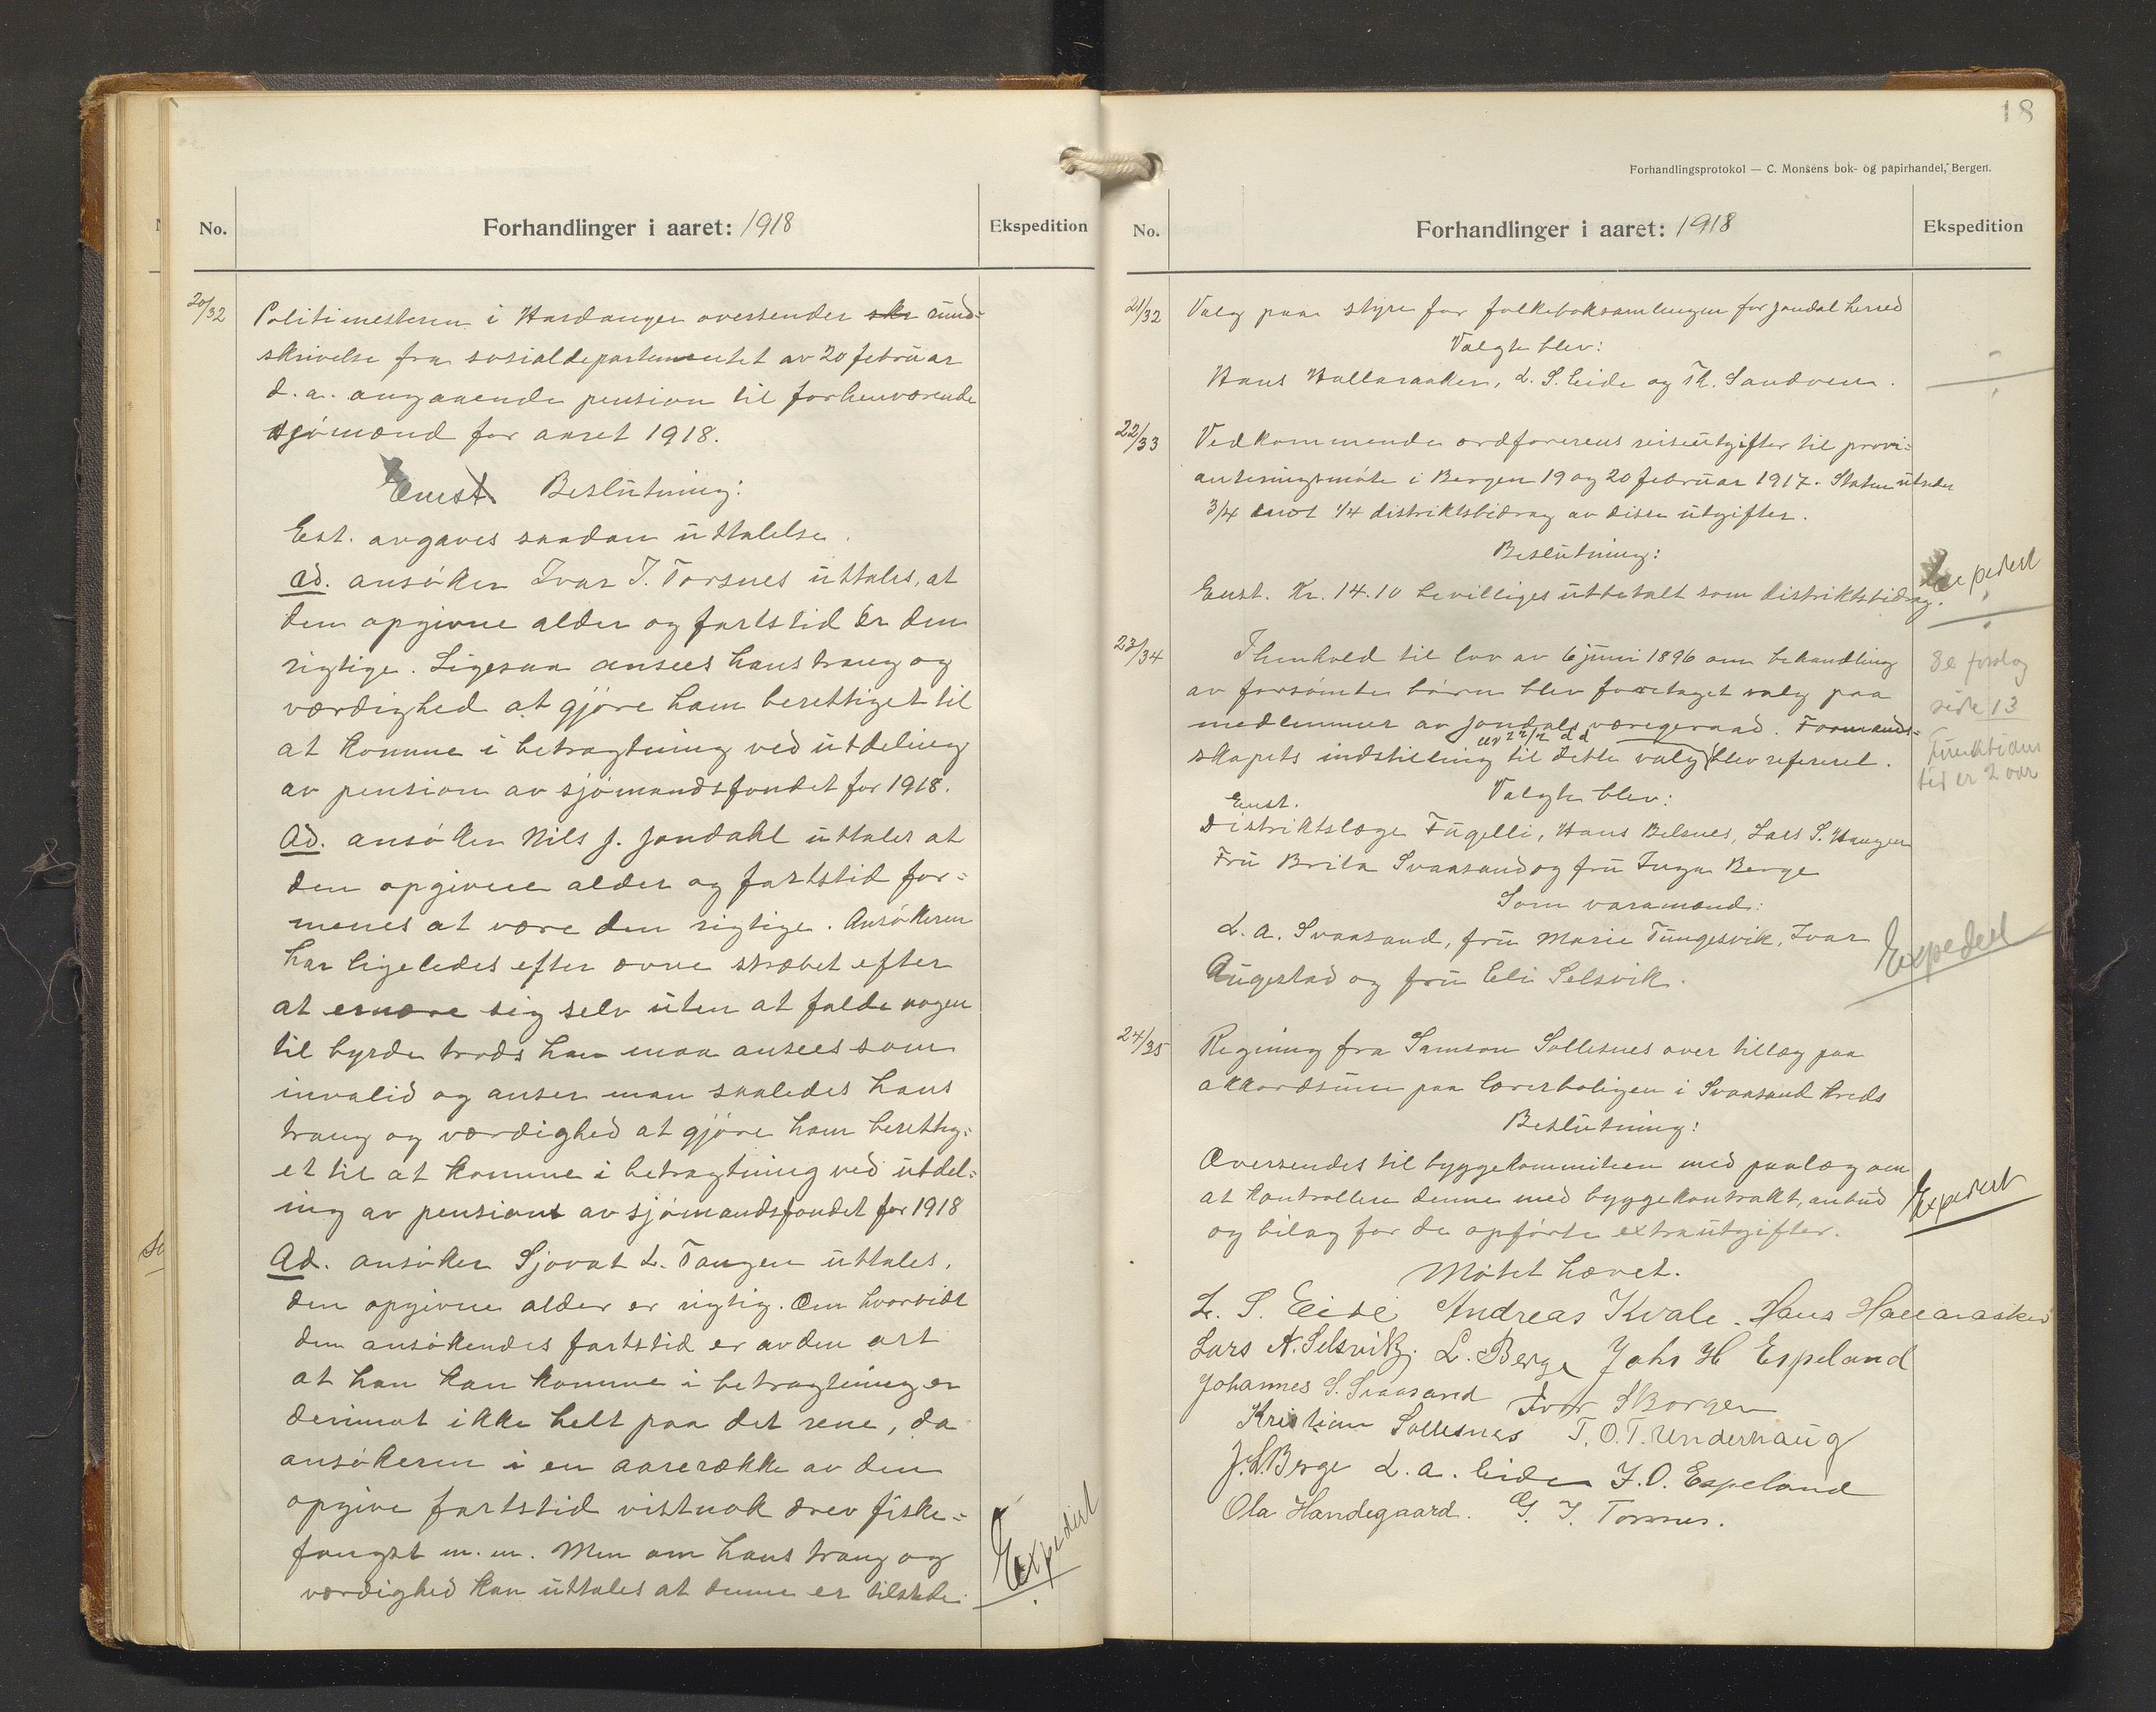 No.
Forhandlinger i aaret: 1918
Ekspedition
20/32
Politimesteren i Hardanger oversender skr rund=
skrivelse fra sosialdepartementet av 20 februar
d.a. angaaende pension til forhenværende
sjømænd for aaret 1918.
Enst Beslutning:
Est. avgaves saadan uttalelse.
ad. ansøker Ivar J. Torsnes uttales, at
den opgivne alder og fartstid er den
rigtige. Ligesaa ansees hans trang og
værdighed at gjøre ham berettiget til
at komme i betragtning ved utdeling
av pension av sjømandsfondet for 1918.
Ad. ansøker Nils J. Jondahl uttales at
den opgivne alder og fartstid for=
menes at være den rigtige. Ansøkeren
har ligeledes efter ævne stræbet efter
at ernære sig selv uten at falde nogen
til byrde trods han maa ansees som
invalid og anser man saaledes hans
trang og værdighed at gjøre ham berettig=
et til at komme i betragtning ved utdel=
ing av pension av sjømandsfondet for 1918
Ad. ansøker Sjovat L. Tangen uttales,
den opgivne alder er rigtig. Om hvorvidt
den ansøkendes fartstid er av den art
at han kan komme i betragtning er
derimot ikke helt paa det rene, da
ansøkeren i en aarerække av den
opgive fartstid vistnok drev fiske=
fangst m.m. Men om hans trang og
værdighed kan uttales at denne er tilstede.
Expedert
18
Forhandlingsprotokol — C. Monsens bok- og papirhandel, Bergen.
No.
Forhandlinger i aaret: 1918
Ekspedition
21/32
Valg paa styre for folkeboksamlingen for Jondal herred
Valgte blev:
Hans Hallaraaker, L. S. Eide og Th. Sandven.
22/33
Vedkommende ordførerens reiseutgifter til provi=
anteringsmøte i Bergen 19 og 20 februar 1917. Staten utreder
3/4 imot 1/4 distriktsbidrag av disse utgifter.
Beslutning:
Enst. Kr. 14.10 bevilliges utbetalt som distriktsbidrag.
Expedert
23/34
I henhold til lov av 6 juni 1896 om behandling
av forsømte børn blev foretaget valg paa
medlemmer av Jondals værgeraad. Formands=
av 22/2 d.a
skapets indstilling til dette valg blev referert.
Se forslag
side 13
Funktions
tid er 2 aar
Valgte blev:
Enst.
Distriktslæge Fugelli, Hans Belsnes, Lars S. Haugen
Fru Brita Svaasand og fru Inga Berge
Som varamænd:
L. A. Svaasand, fru Marie Tungesvik, Ivar
Augestad og fru Eli Selsvik.
Expedert
24/35
Regning fra Samson Sollesnes over tillæg paa
akkordsum paa lærerboligen i Svaasand kreds
Beslutning:
Oversendes til byggekommiteen med paalæg om
at kontrollere denne med byggekontrakt, anbud
og bilag for de opførte extrautgifter.
Expedert
Møtet hævet.
L. S. Eide Andreas Kvale. Hans Hallaraaker
Lars N. Selsvik. L. Berge Johs H Espeland
Johannes S. Svaasand Ivar Skorgen
Kristian Sollesnes T. O. T. Underhaug
J. S. Berge L. A. Eide J. O. Espeland
Ola Handegaard. G. J. Torsnes.